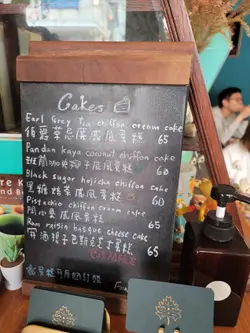 Cakes
Earl Grey Tea chiffon cream cake
伯爵茶忌廉戚風蛋糕 65
Pandan kaya coconut chiffon cake
班蘭咖央椰子戚風蛋糕 60
Black sugar hojicha chiffon cake
黑糖焙茶戚風蛋糕 60
Pistachio chiffon cream cake
開心果戚風蛋糕 65
Rum raisin basque cheese cake
65